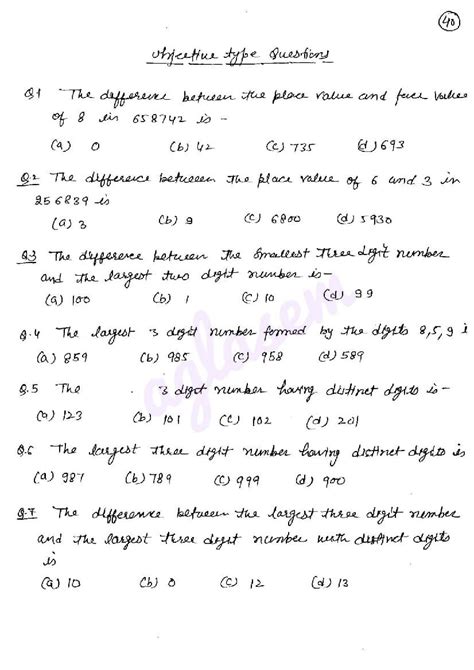 40
Objective type Questions
Q.1 The difference between the place value and face value
of 8 in 658742 is -
(a) 0 (b) 42 (c) 735 (d) 693
Q.2 The difference between the place value of 6 and 3 in
256839 is
(a) 3 (b) 9 (c) 6800 (d) 5930
Q.3 The difference between the smallest three digit number
and the largest two digit number is -
(a) 100 (b) 1 (c) 10 (d) 99
Q.4 The largest 3 digit number formed by the digits 8,5,9 is
(a) 859 (b) 985 (c) 958 (d) 589
Q.5 The 3 digit number having distinct digits is -
(a) 123 (b) 101 (c) 102 (d) 201
Q.6 The largest three digit number having distinct digits is
(a) 987 (b) 789 (c) 999 (d) 900
Q.7 The difference between the largest three digit number
and the largest three digit number with distinct digits
is
(a) 10 (b) 0 (c) 12 (d) 13
aglasem